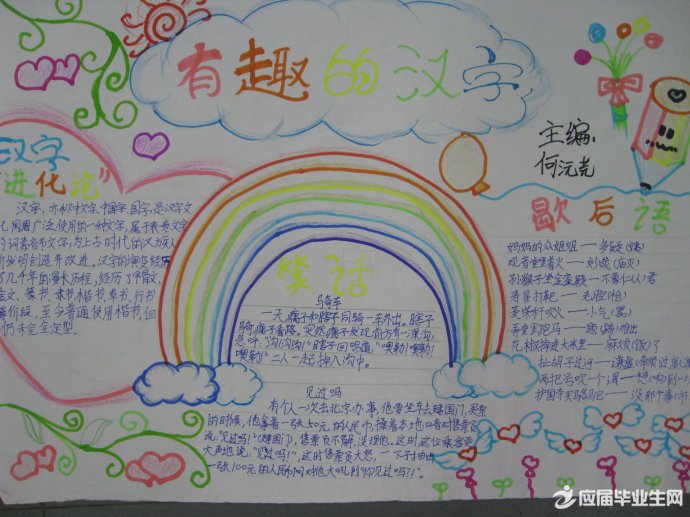 有趣的汉字
主编:
何沅尧
汉字
"进化论"
汉字,亦称中文字、中国字、国字,是汉字文
化圈广泛使用的一种文字,属于表意文字
的词素音节文字,为上古时代的汉族人
所发明创造并改进。汉字的演变经历
了几千年的漫长历程,经历了甲骨文、
金文、篆书、隶书、楷书、草书、行书
等阶段,至今普通使用楷书,但
仍未完全定型。
笑话
马奇车
一天,瘸子和瞎子同骑一车外出。瞎子
骑,瘸子看路。突然,瘸子发现前方有一深沟,
急呼"沟!沟!沟!"瞎子回唱道"噢勒!噢勒!
噢勒!"二人一起掉入沟中。
见过吗
有个人一次去北京办事,他要坐车去建国门,买票
的时候,他拿着一张10元的人民币,操着本地口音对售票员
说:"见过吗!"(建国门),售票员不解,没理他。这时这位乘客更
大声地说:"见过吗!",这时售票员大怒,一下子抽出
一张100元的人民币对他大吼到"你见过吗?!"。
歇后语
妈妈的众姐姐——多姨(疑)
观音堂里着火——妙哉(庙灾)
孙猴子坐金銮殿——不像仁(人)君
寿星打靶——老腔(枪)
麦柴秆吹火——小气(器)
弄堂里跑马——题(蹄)难出
花椒掉进大米里——麻饭(烦)了
扯胡子过河——谦虚
两把号吹一个调——想(响)到一
护国寺买骆驼——没那个事(市)
应届毕业生网